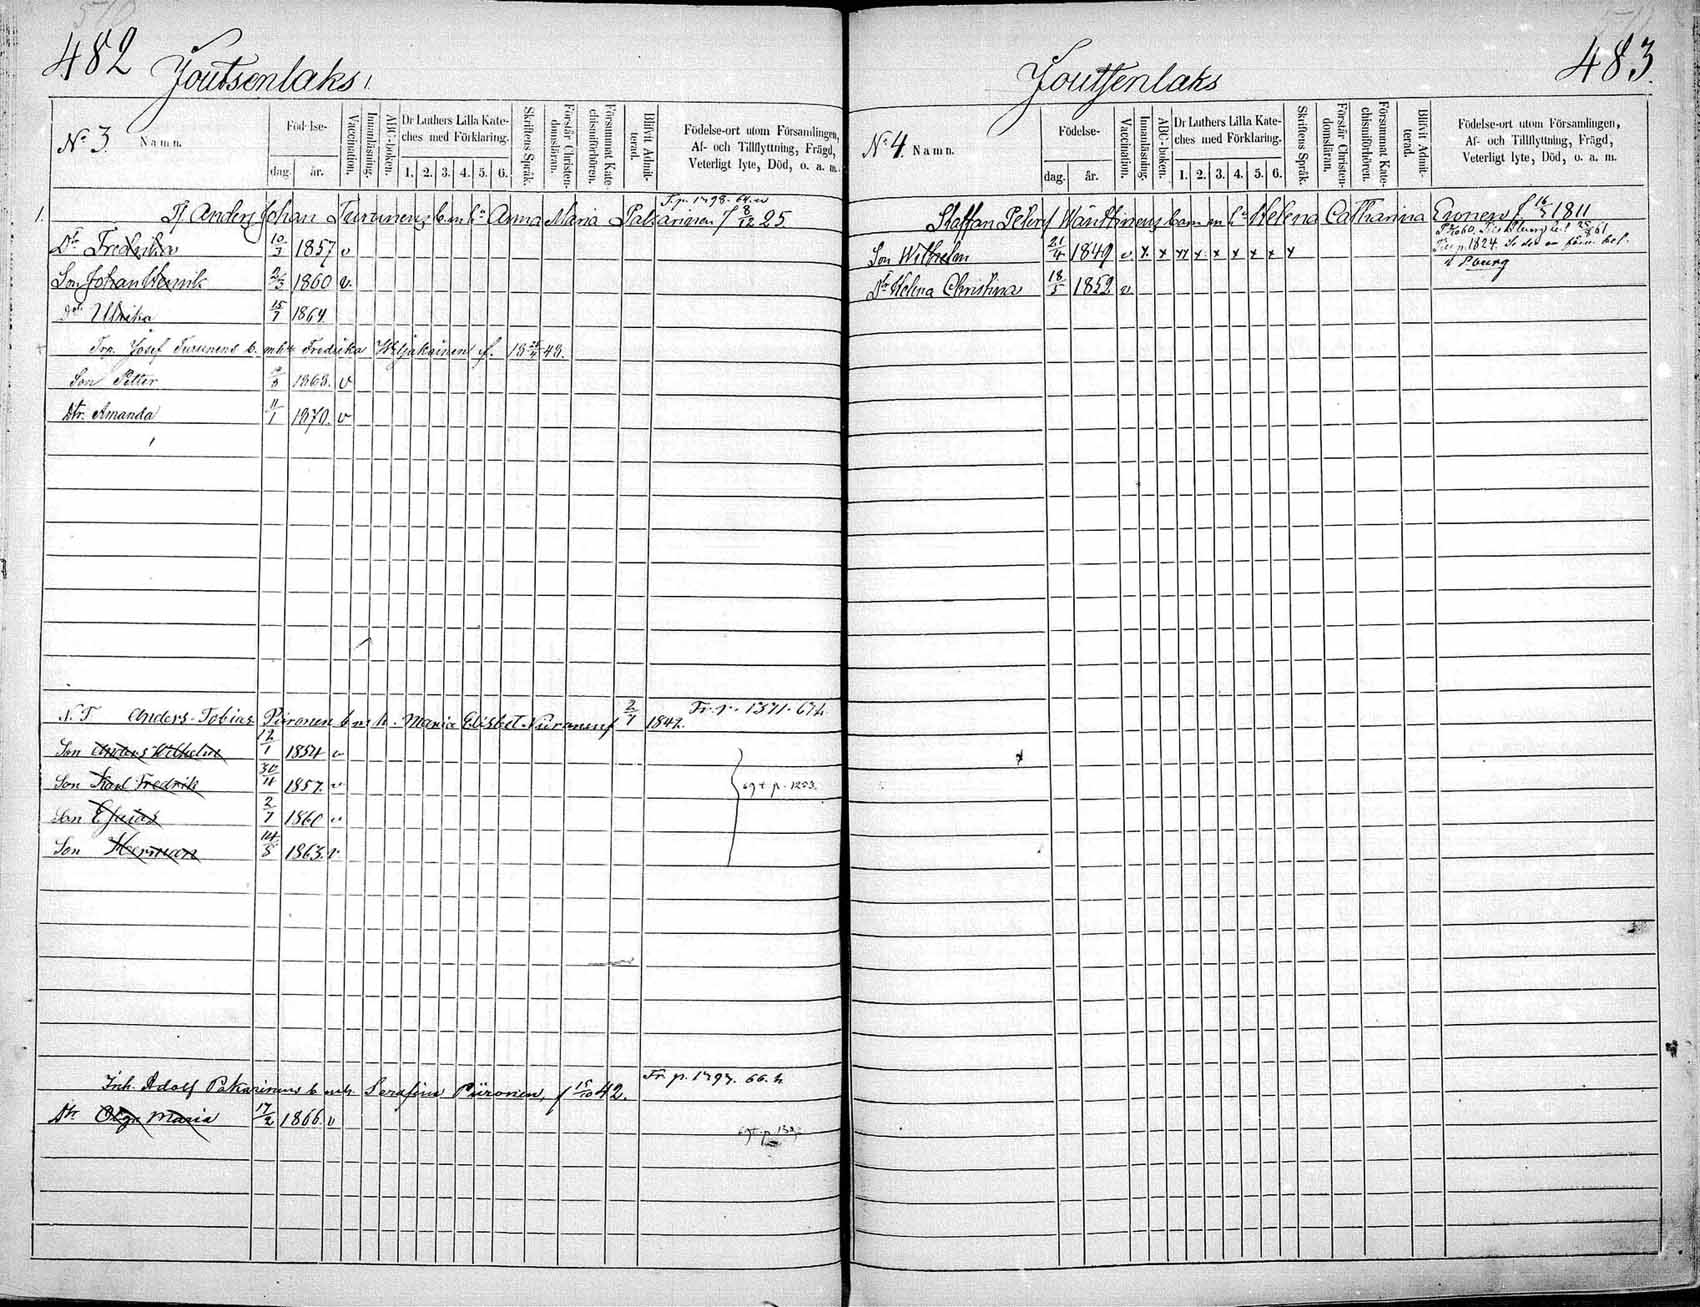 482
Joutsenlaks
No 3. Namn.
Födelse-
dag. år.
Vaccination.
Innanläsning.
ABC-boken.
Dr Luthers Lilla Kate-
ches med Förklaring.
1. 2. 3. 4. 5. 6.
Skriftens Språk.
Förstår Christen-
domsläran.
Försummat Kate-
chismiförhören.
Blifvit Admit-
terad.
Födelse-ort utom Församlingen,
Af- och Tillflyttning, Frägd,
Veterligt lyte, Död, o. a. m.
1. Anders Johan Turunens b. m. h. Anna Maria f 8/12 25.
Dr Fredrika 10/3 1857 v
Son Johan Henrik 1860 v
Dr Ulrika 15/7 1864
Josef Turunens b. m h Fredrika f. 18 48.
Son Petter 1868. v
Dtr. Amanda 11/1 1870. v
N. T Anders Tobias Piironen b m h. Maria Elisbet Nuranen f 2/7 1842. Fr. p. 1371. 67 h
Son Anders Wilhelm 12/1 1854 v
Son Karl Fredrik 30/11 1857. v
Son Esaias 2/7 1860 v
Son Herman 14/8 1863. v
69 t p. 1253.
Inh. Adolf Pakarinens b m h. Serafiin Piironen, f 15/10 42. Fr. p. 1797. 66. h
Dtr Olga Maria 17/2 1866. v
483.
Joutsenlaks
No 4. Namn.
Födelse-
dag. år.
Vaccination.
Innanläsning.
ABC-boken.
Dr Luthers Lilla Kate-
ches med Förklaring.
1. 2. 3. 4. 5. 6.
Skriftens Språk.
Förstår Christen-
domsläran.
Försummat Kate-
chismiförhören.
Blifvit Admit-
terad.
Födelse-ort utom Församlingen,
Af- och Tillflyttning, Frägd,
Veterligt lyte, Död, o. a. m.
Staffan Petter Wänttinens barn m h Helena Catharina Eronen f 16/3 1811
Son Wilhelm 21/4 1849 v x x x x x x x x x
p. 1824.
Pburg
Dr Helena Christina 18/5 1852 v